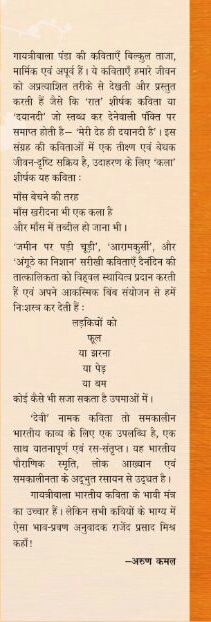 गायत्रीबाला पंडा की कविताएँ बिल्कुल ताजा,
मार्मिक एवं अपूर्व हैं। ये कविताएँ हमारे जीवन
को अप्रत्याशित तरीके से देखती और प्रस्तुत
करती हैं जैसे कि ‘रात’ शीर्षक कविता या
‘दयानदी’ जो स्तब्ध कर देनेवाली पंक्ति पर
समाप्त होती है– ‘मेरी देह ही दयानदी है’। इस
संग्रह की कविताओं में एक तीक्ष्ण एवं बेधक
जीवन-दृष्टि सक्रिय है, उदाहरण के लिए ‘कला’
शीर्षक यह कविता :
माँस बेचने की तरह
माँस खरीदना भी एक कला है
और माँस में तब्दील हो जाना भी।
‘जमीन पर पड़ी चूड़ी’, ‘आरामकुर्सी’, और
‘अंगूठे का निशान’ सरीखी कविताएँ दैनंदिन की
तात्कालिकता को विह्वल स्थायित्व प्रदान करती
हैं एवं अपने आकस्मिक बिंब संयोजन से हमें
निःशस्त्र कर देती हैं :
लड़कियों को
फूल
या झरना
या पेड़
या बम
कोई कैसे भी सजा सकता है उपमाओं में।
‘देवी’ नामक कविता तो समकालीन
भारतीय काव्य के लिए एक उपलब्धि है, एक
साथ यातनापूर्ण एवं रस-संतृप्त। यह भारतीय
पौराणिक स्मृति, लोक आख्यान एवं
समकालीनता के अद्भुत रसायन से उद्भूत है।
गायत्रीबाला भारतीय कविता के भावी मंत्र
का उच्चार हैं। लेकिन सभी कवियों के भाग्य में
ऐसा भाव-प्रवण अनुवादक राजेंद्र प्रसाद मिश्र
कहाँ!
–अरुण कमल